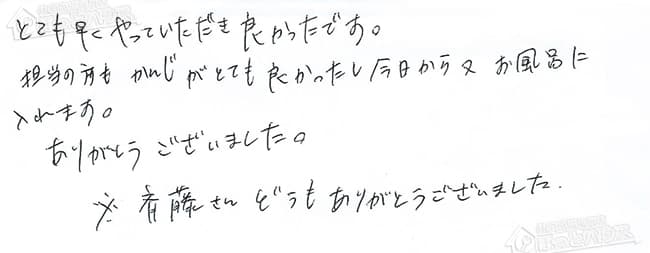 とても早くやっていただき良かったです。
担当の方も かんじ がとても良かったし今日から又 お風呂に
入れます。
ありがとう ございました。
※ 斉藤さん どうも ありがとうございました.